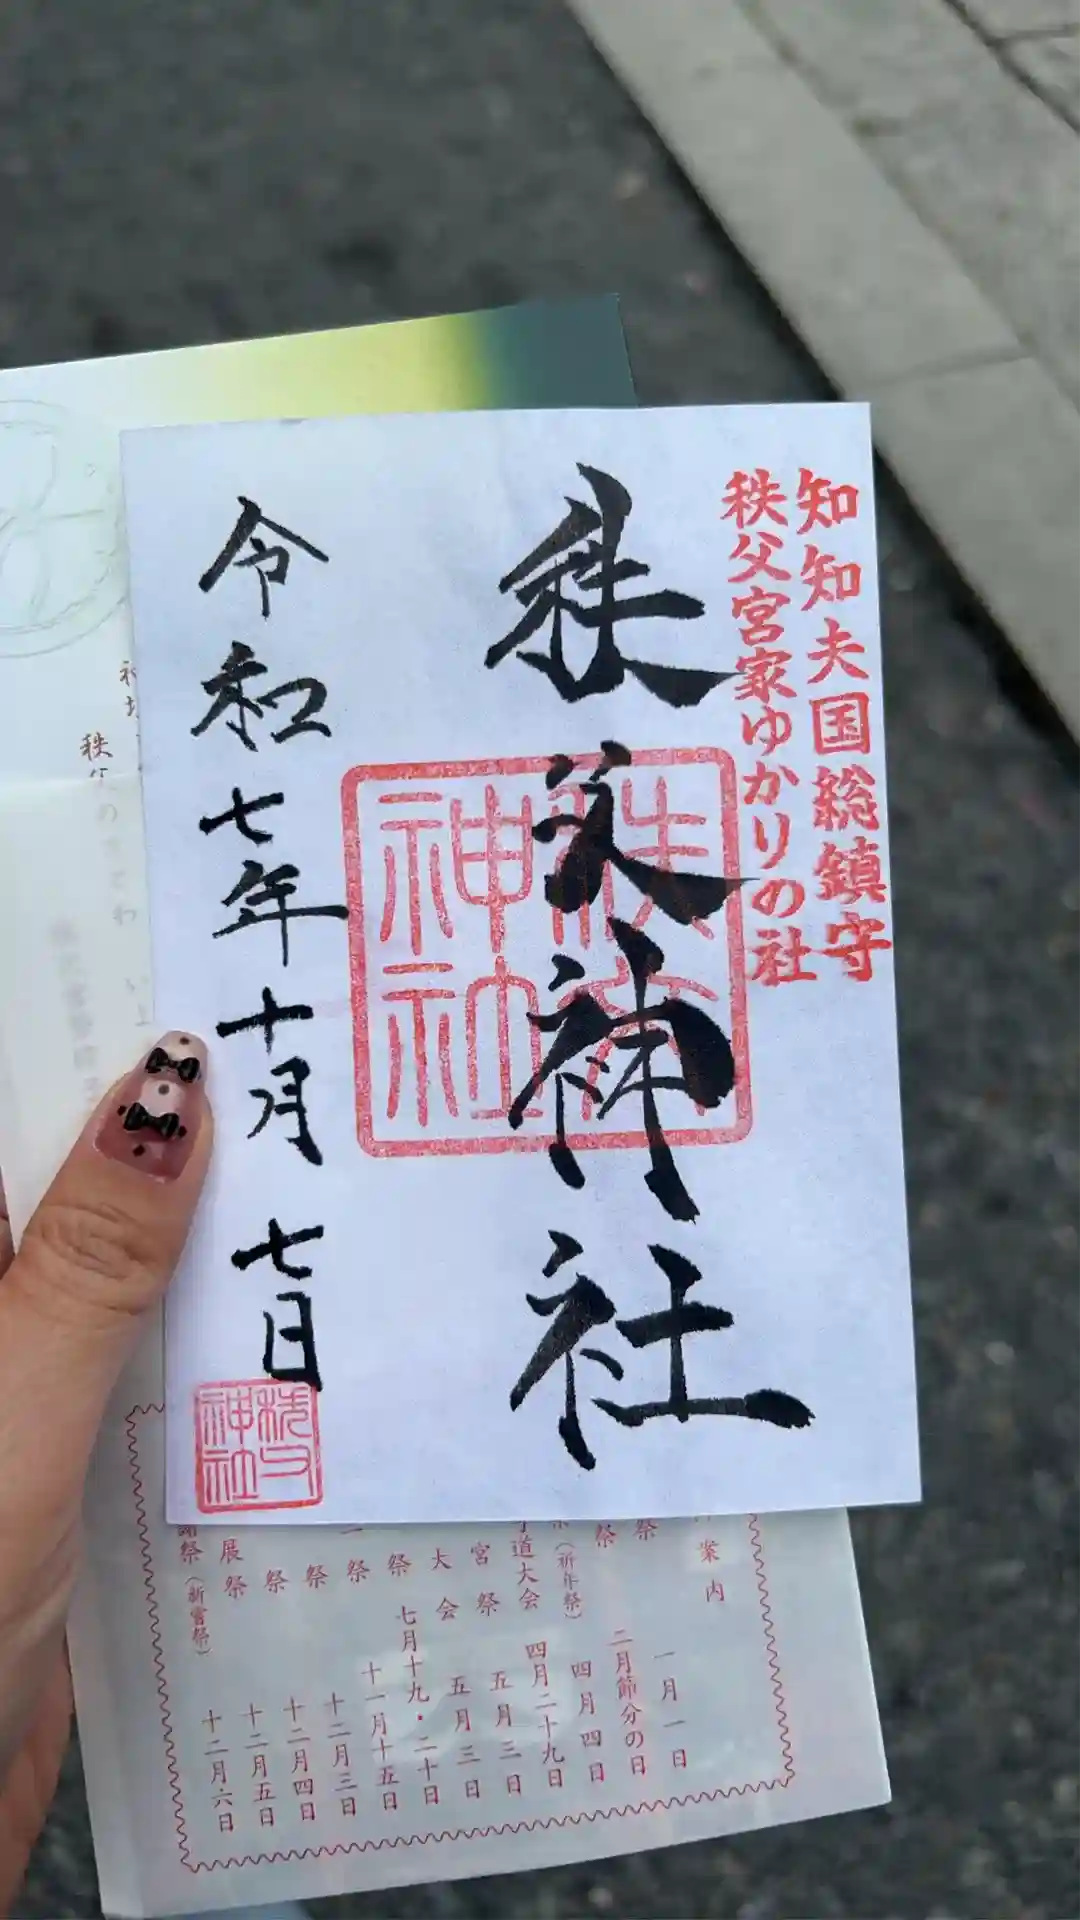 知知夫国総鎮守
秩父宮家ゆかりの社
秩父神社
秩父
神社
令和七年十月七日
秩父
神社
案内
祭
一月一日
祭
二月節分の日
(祈年祭)
四月四日
道大会
四月二十九日
宮祭
五月三日
大会
五月三日
祭
七月十九・二十日
祭
十一月十五日
祭
十二月三日
祭
十二月四日
展祭
十二月五日
祭(新嘗祭)
十二月六日